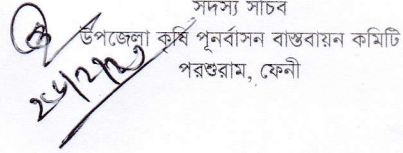 সদস্য সচিব
উপজেলা কৃষি পূনর্বাসন বাস্তবায়ন কমিটি
পরশুরাম, ফেনী